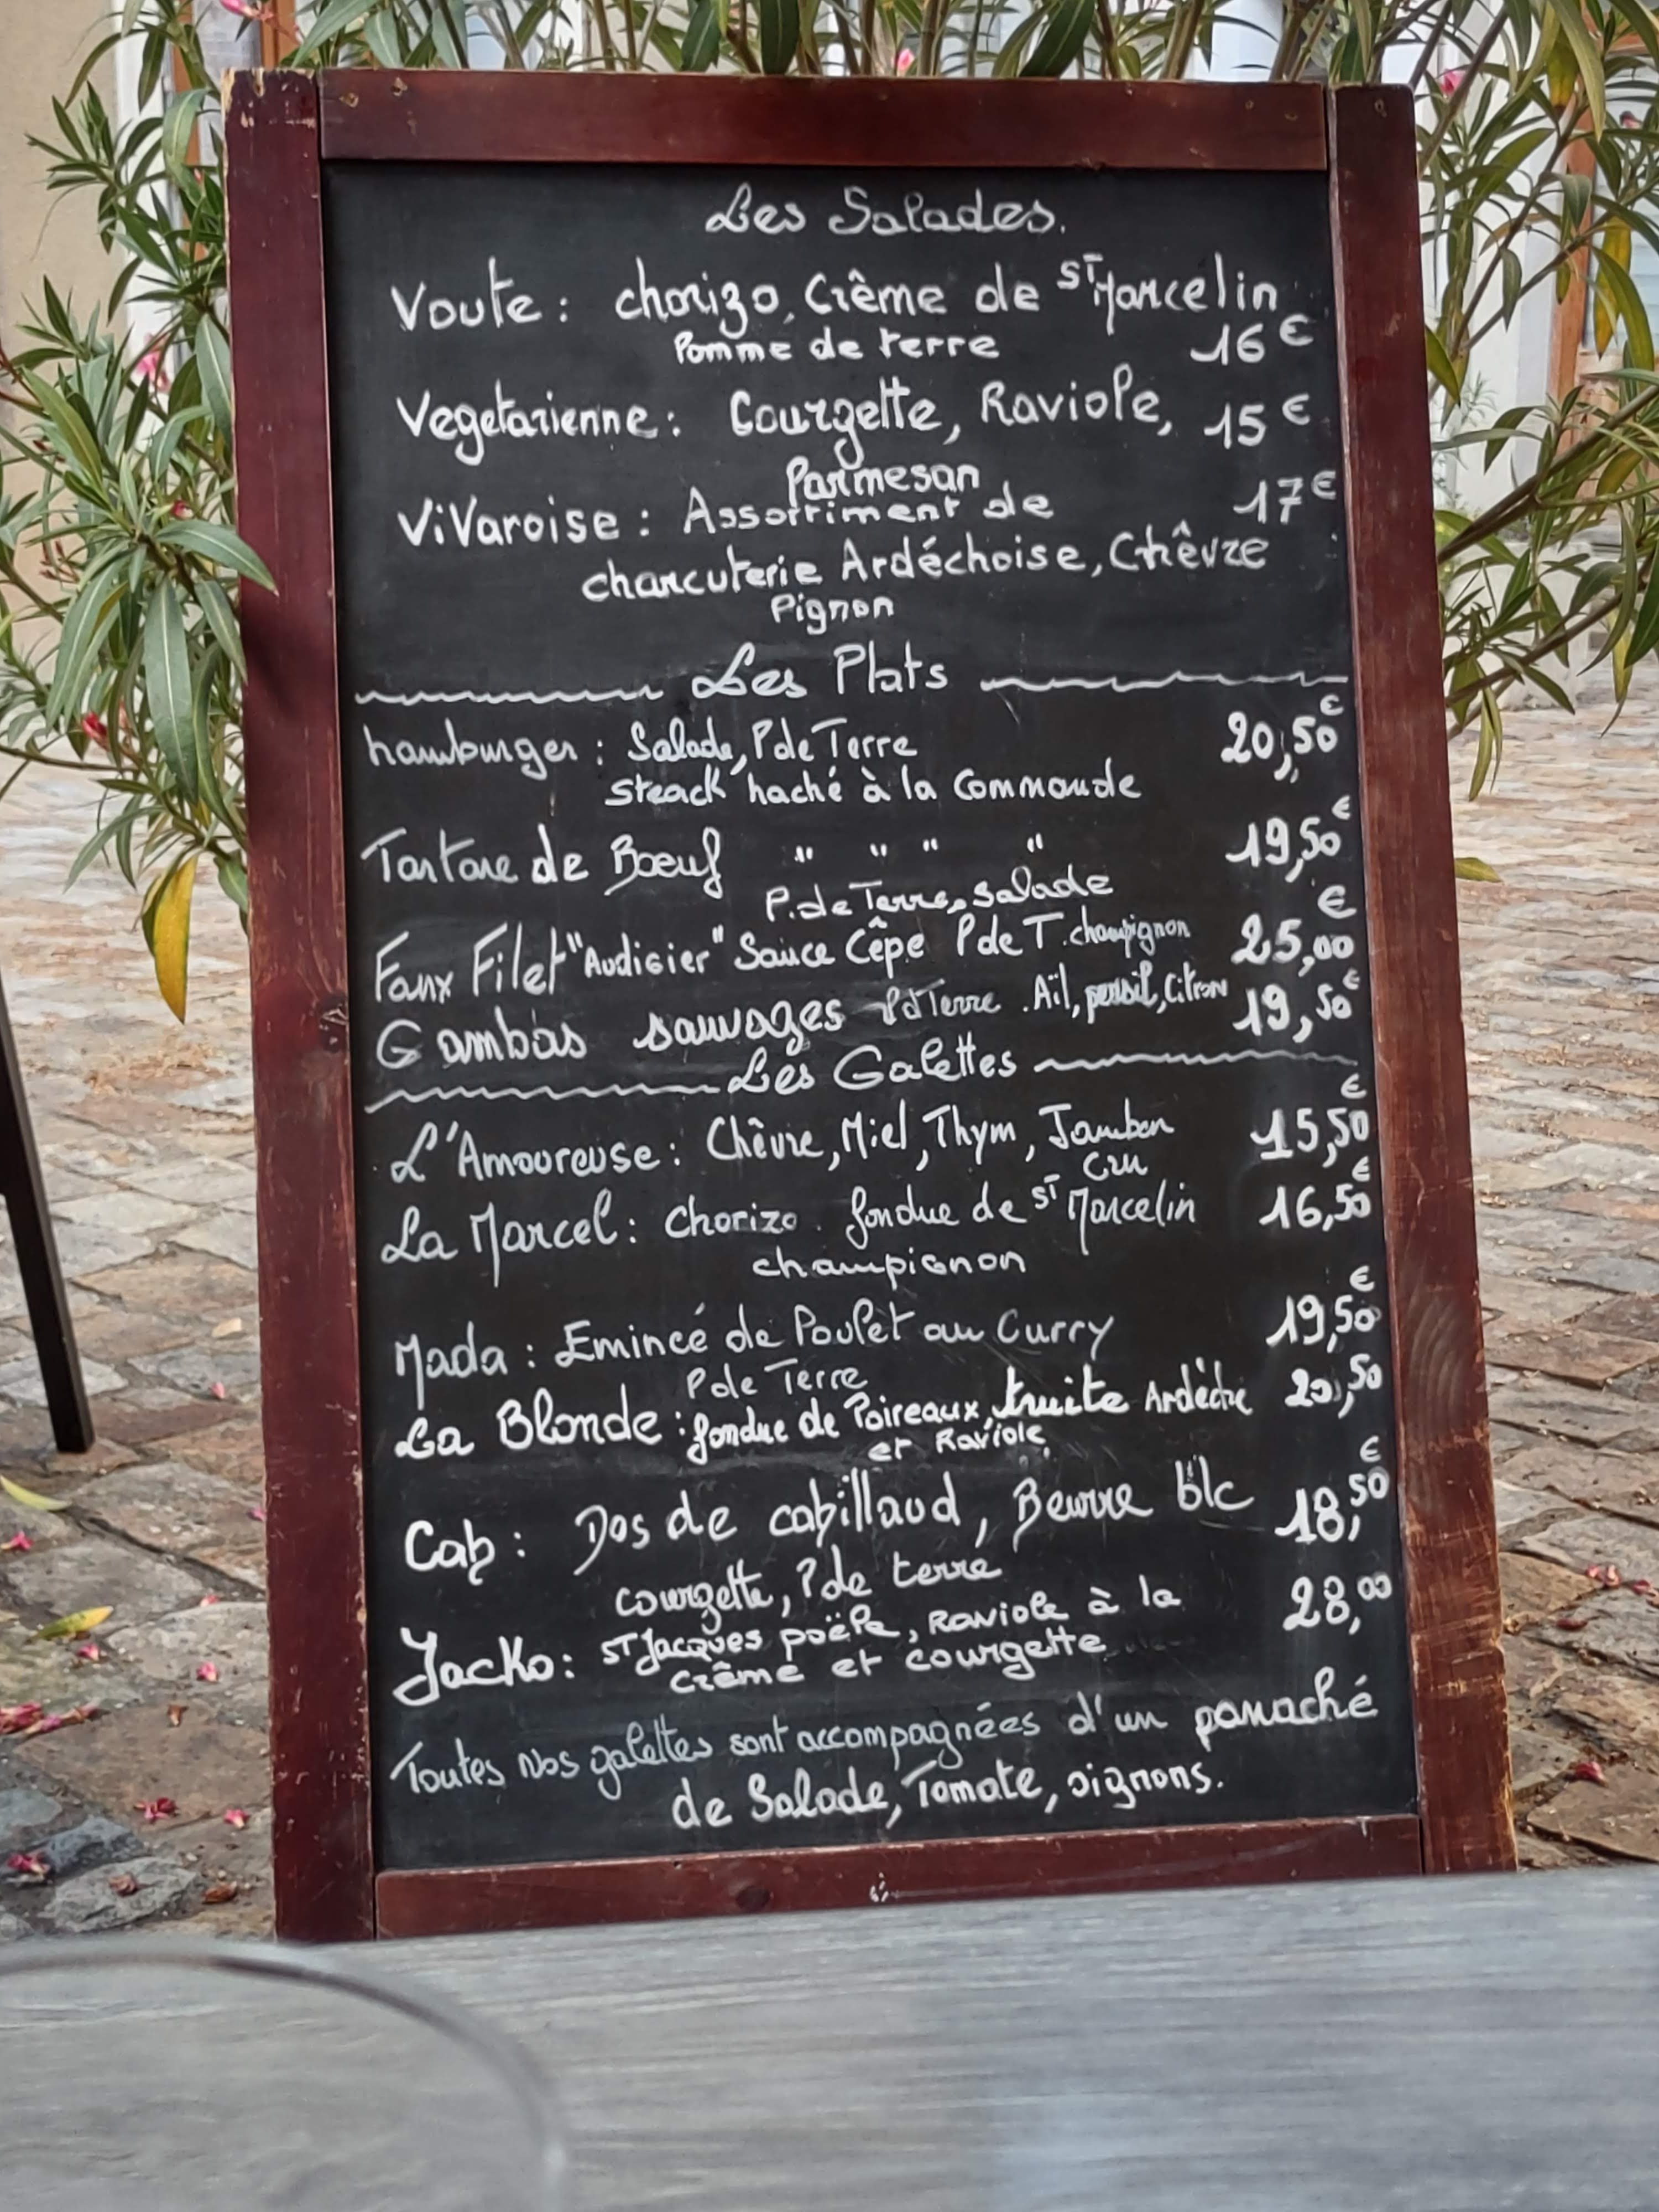 Les Salades.
Voute : chorizo, Crême de St Marcelin
Pomme de terre 16 €
Vegetarienne : Courgette, Raviole, 15 €
Parmesan
ViVaroise : Assortiment de 17 €
charcuterie Ardéchoise, Chêvre
Pignon
Les Plats
hamburger : Salade, P de Terre 20,50 €
Steack haché à la Commande
Tartare de Bœuf " " " " 19,50 €
P. de Terre, salade
Faux Filet "Audigier" Sauce Cêpe P de T. champignon 25,00 €
Gambas sauvages P d Terre . Aïl, persil, Citron 19,50 €
Les Galettes
L'Amoureuse : Chêvre, Miel, Thym, Jambon 15,50 €
Cru
La Marcel : Chorizo . fondue de St Marcelin 16,50 €
champignon
Mada : Emincé de Poulet au Curry 19,50 €
P de Terre
La Blonde : fondue de Poireaux, truite Ardèche 20,50
et Raviole,
Cab : Dos de cabillaud, Beurre blc 18,50 €
courgette, P de terre
Jacko : St Jacques poële, Raviole à la 28,00
crême et courgette
Toutes Nos galettes sont accompagnées d'un panaché
de Salade, Tomate, oignons.